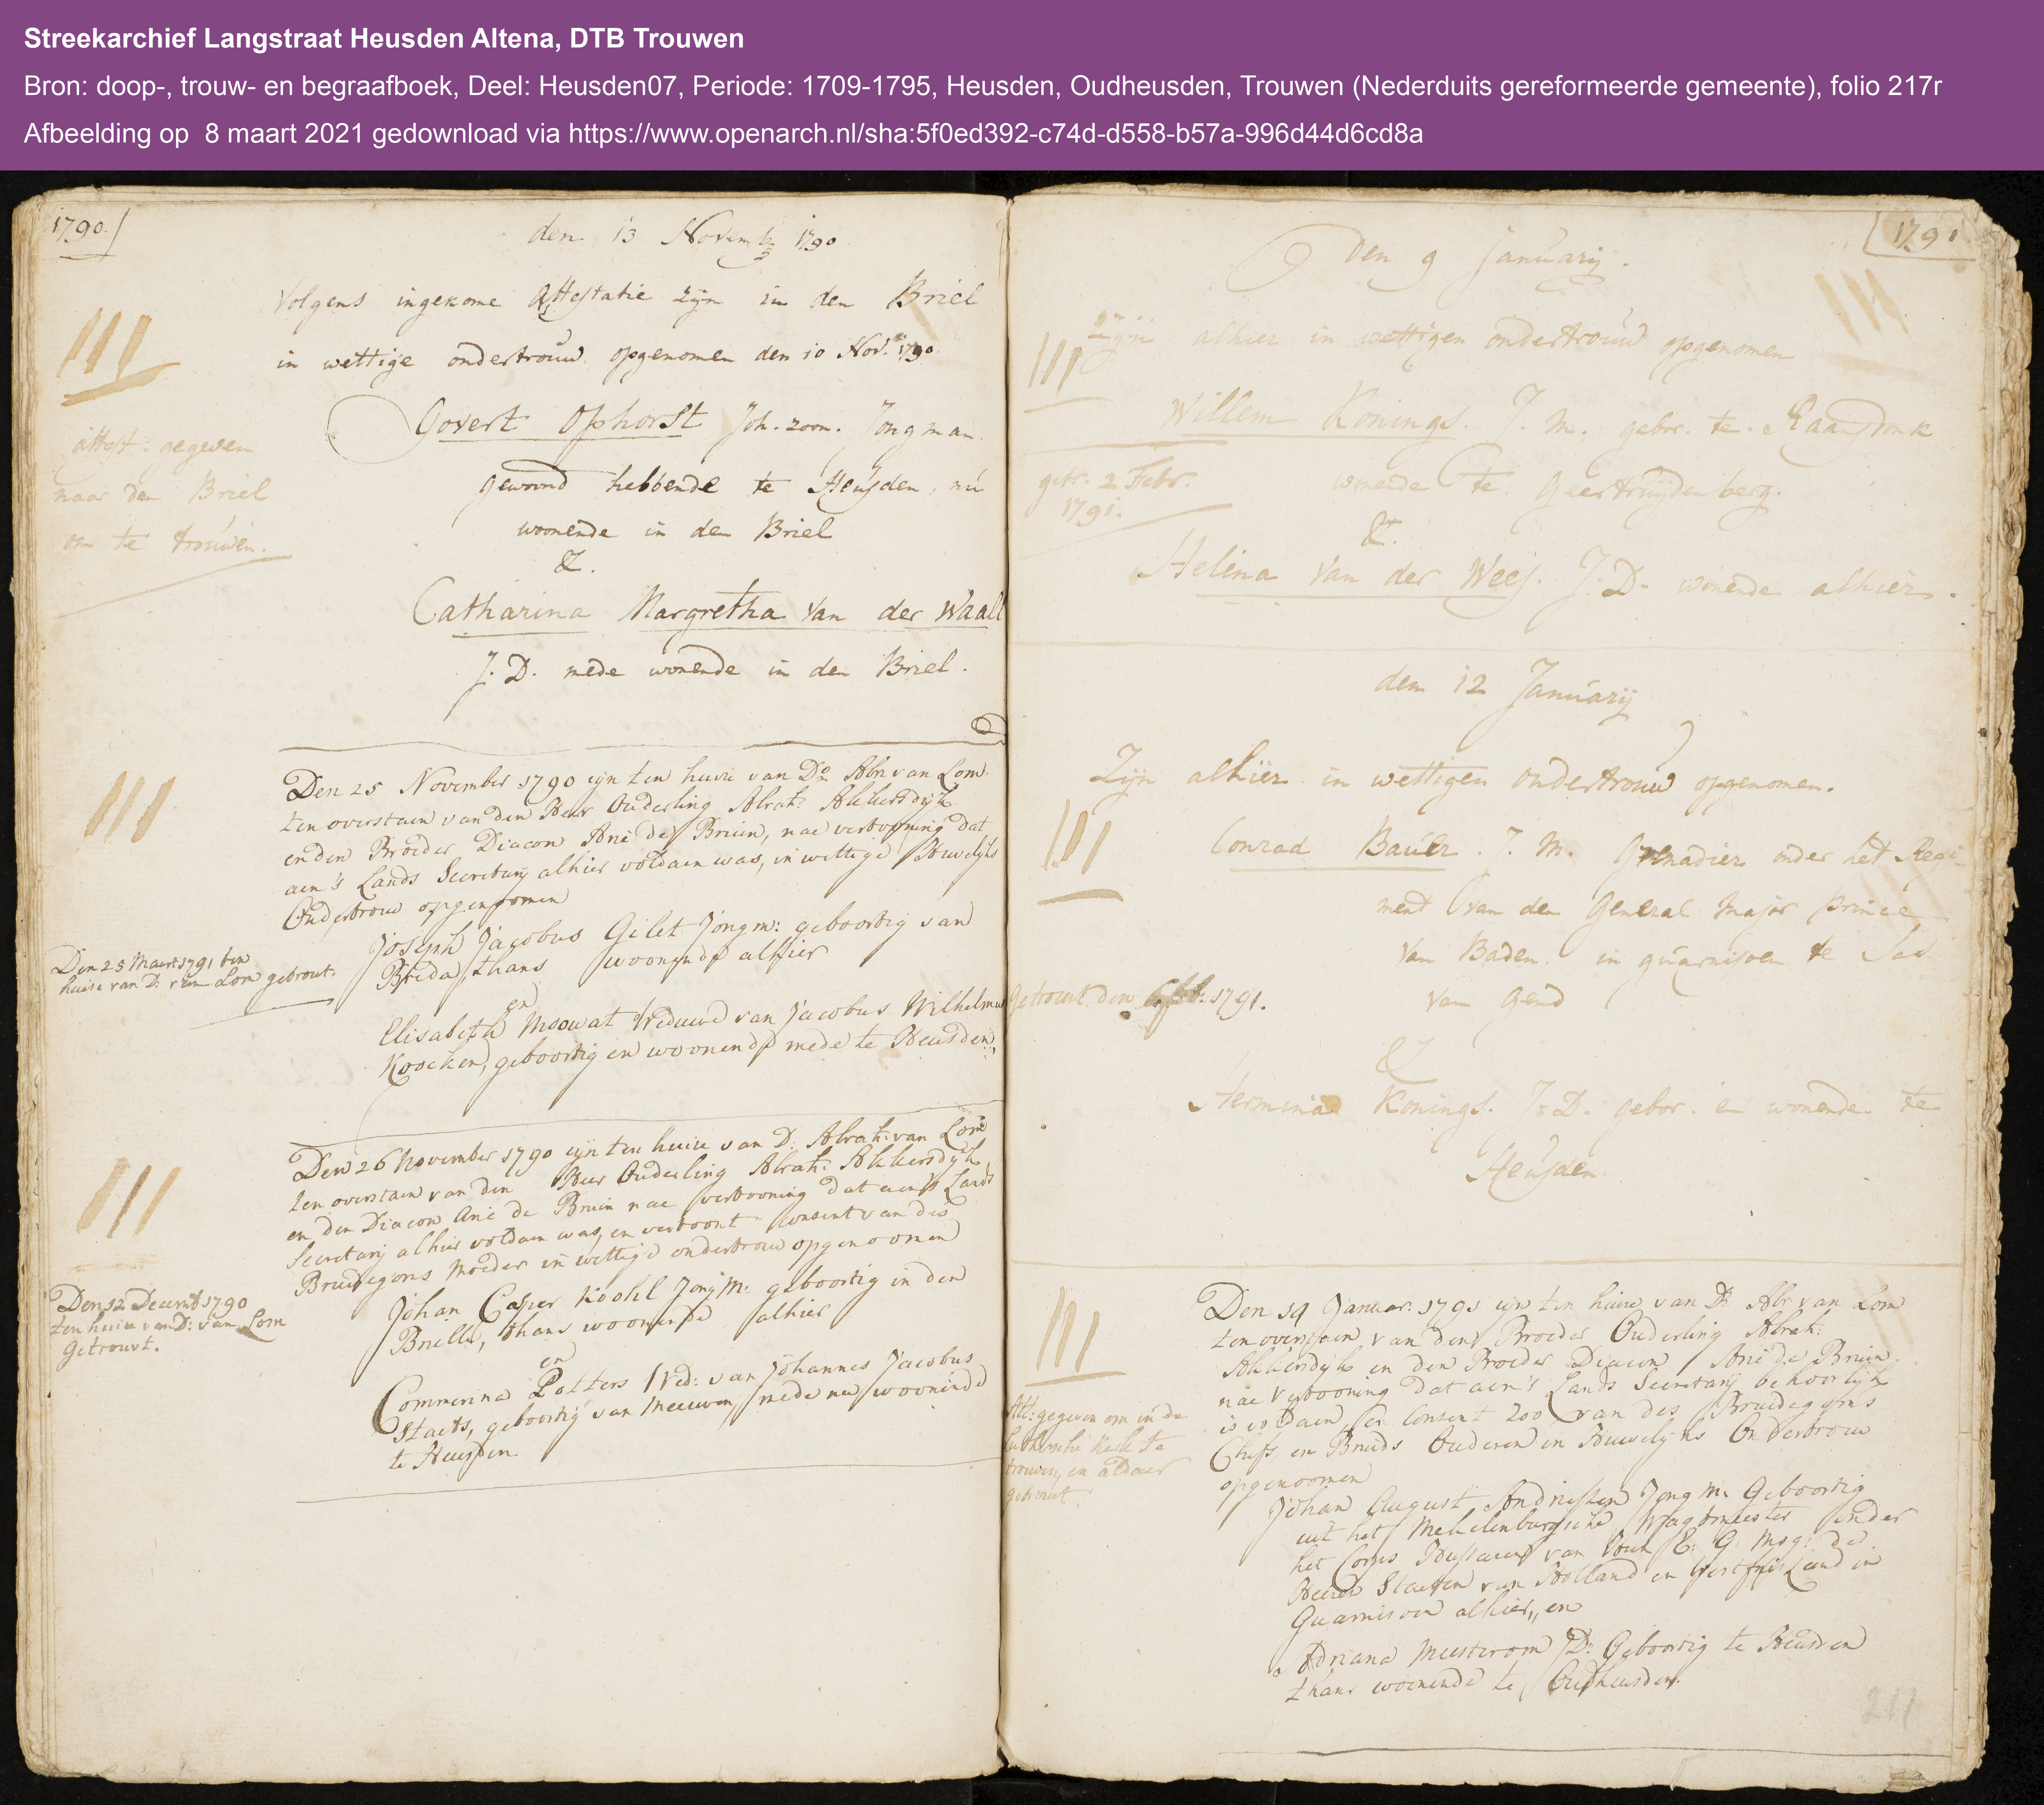 Streekarchief Langstraat Heusden Altena, DTB Trouwen
Bron: doop-, trouw- en begraafboek, Deel: Heusden07, Periode: 1709-1795, Heusden, Oudheusden, Trouwen (Nederduits gereformeerde gemeente), folio 217r
Afbeelding op 8 maart 2021 gedownload via https://www.openarch.nl/sha:5f0ed392-c74d-d558-b57a-996d44d6cd8a
1790.
den 13 Novemb 1790
Volgens ingekome Attestatie zijn in den Briel
in wettige ondertrouw opgenomen den 10 Nov. 1790.
Govert Ophorst Joh. zoon. Jongman.
gewoond hebbende te Heusden, nu
woonende in den Briel
&.
Catharina Margretha van der Waall
J. D. mede wonende in den Briel.
attest: gegeven
naar den Briel
om te trouwen.
Den 25 November 1790 zijn ten huise van Do Abr van Lom
ten overstaen van den Heer Ouderling Abrah: Akkersdijk
en den Broeder Diacon Arie de Bruin, nae vertooning dat
aen 's Lands Secretarij alhier voldaen was, in wettige Huwelijks
Ondertrouw opgenoomen
Joseph Jacobus Gilet Jongm: geboortig van
Breda, thans woonende alhier
en
Elisabeth Moowat Weduwe van Jacobus Wilhelmus
Koocken, geboortig en woonende mede te Heusden,
Den 25 Maert 1791 ten
huise van D: van Lom getrout.
Den 26 November 1790 zijn ten huise van D: Abrah: van Lom
ten overstaen van den Heer Ouderling Abrah: Akkersdijk
en den Diacon Arie de Bruin nae vertooning dat aen 's Lands
Secretarij alhier voldaen was, en vertoont consent van des
Bruidegoms Moeder in wettige ondertrouw opgenoomen
Johan Casper Koohl Jong M: geboortig in den
Brielle, thans woonende alhier
en
Commerina Potters Wed: van Johannes Jacobus
Staets, geboortig van Meeuwen, mede nu woonende
te Heusden
Den 12 Decemb 1790
ten huise van D: van Lom
Getrouwt.
1791
Den 9 Januarij.
Zijn alhier in wettigen ondertrouw opgenomen
Willem Konings. J. M. gebor. te Raamsdonk
wonende te Geertruijdenberg.
&.
Helena van der Wees. J. D. wonende alhier.
getr. 2 Febr.
1791.
den 12 Januarij
Zijn alhier in wettigen ondertrouw opgenomen.
Conrad Bauer. J. M. Grenadier onder het Regi-
ment van den General Major Prince
van Baden. in guarnisoen te Sas
van Gend
&
Hermina Konings. J. D. gebor. en wonende te
Heusden
Getrouwt den 1791.
Den 14 Januar: 1791 zijn ten huise van D: Abr van Lom
ten overstaen van den Broeder Ouderling Abrah:
Akkersdijk en den Broeder Diacon Arie de Bruin
nae vertooning dat aen 's Lands Secretarij behoorlijk
is voldaen, en Consent zoo van des Bruidegoms
Chefs en Bruids Ouderen in Huwelijks Ondertrouw
opgenoomen
Johan August Andriessen Jong M: Geboortig
uit het Mekelenburgsche Wagtmeester onder
het Corps Hussaren van Hun E: G: Mog: de
Heeren Staeten van Holland en Westfriesland in
Guarnisoen alhier, en
Adriana Meesterom J D: Geboortig te Heusden
thans woonende te Oudheusden.
Att: gegeven om in de
Luthersche Kerk te
trouwen, en aldaer
getrout
211